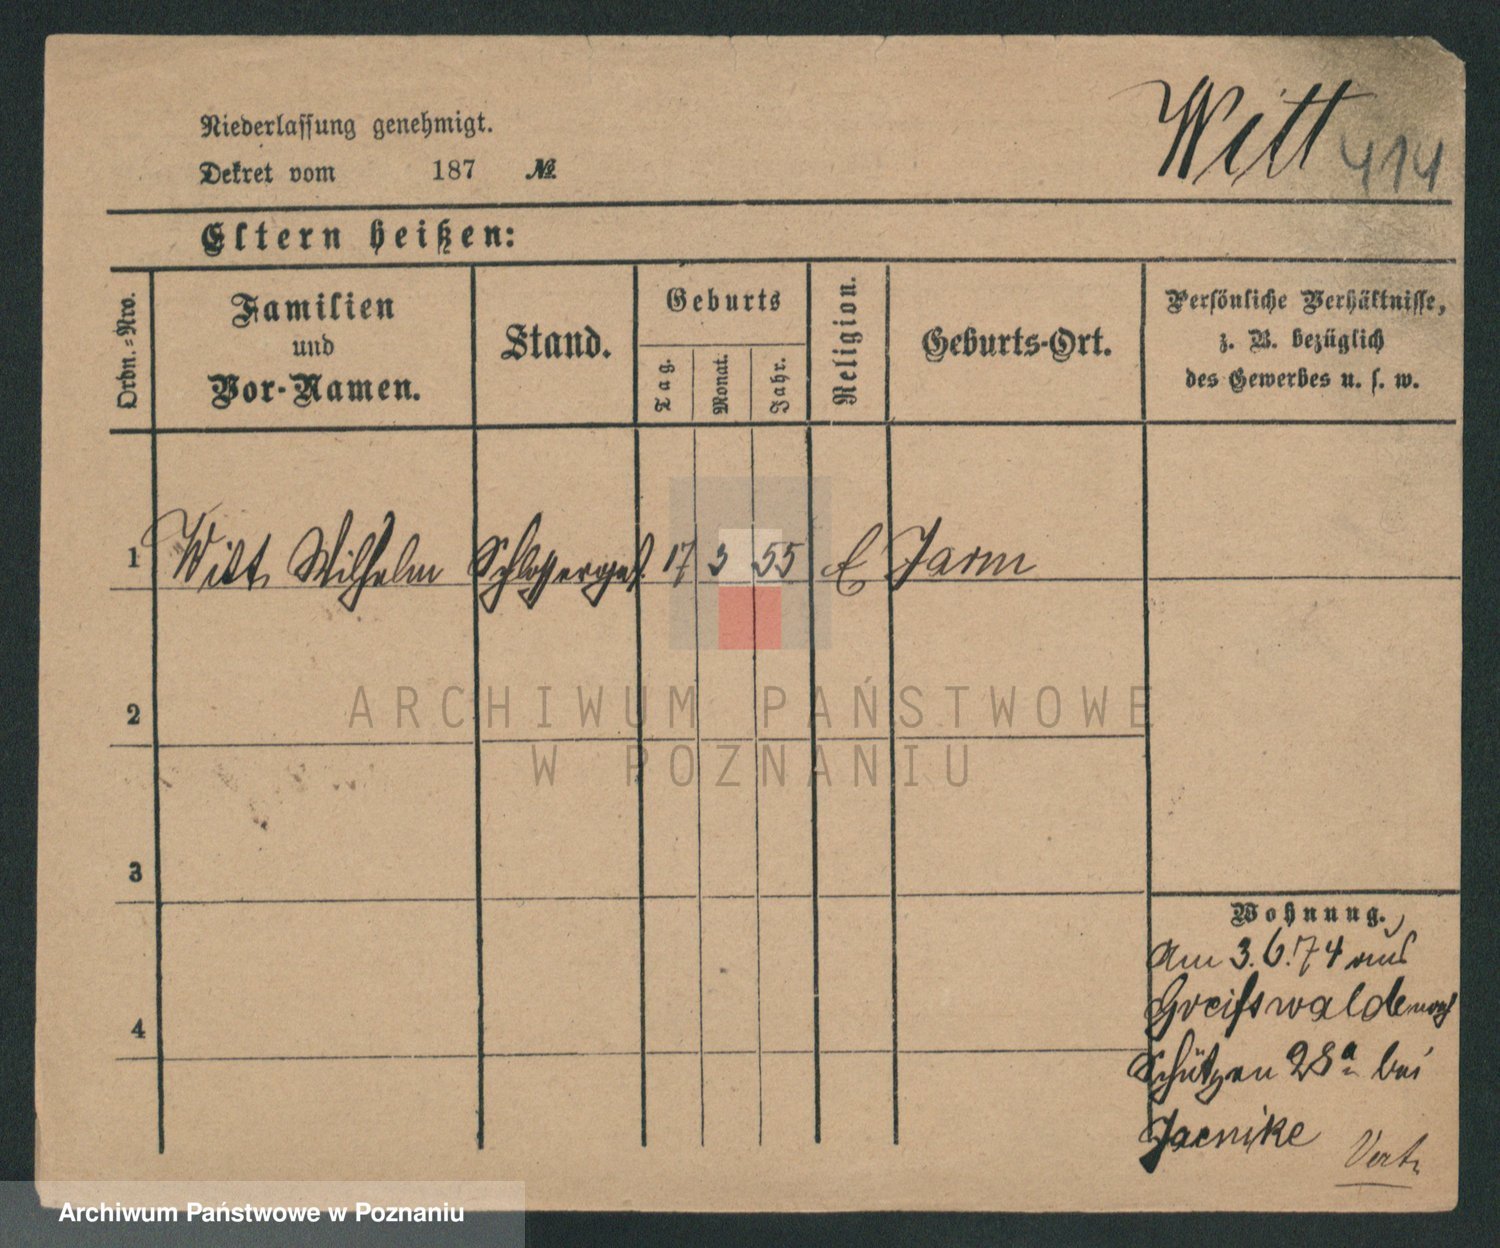 Witt 414
Niederlassung genehmigt.
Dekret vom 187 №
Eltern heißen:
Ordn.-Nro.
Familien
und
Vor-Namen.
Stand.
Geburts
Tag.
Monat.
Jahr.
Religion.
Geburts-Ort.
Persönliche Verhältnisse,
z. B. bezüglich
des Gewerbes u. s. w.
1 Witt Wilhelm Schlosserges. 17 3 55 E Jarm
2
ARCHIWUM PAŃSTWOWE
W POZNANIU
3
Wohnung.
Am 3.6.74 aus
Greifswalde nach
4
Schützen 28a bei
Jaenike
Archiwum Państwowe w Poznaniu